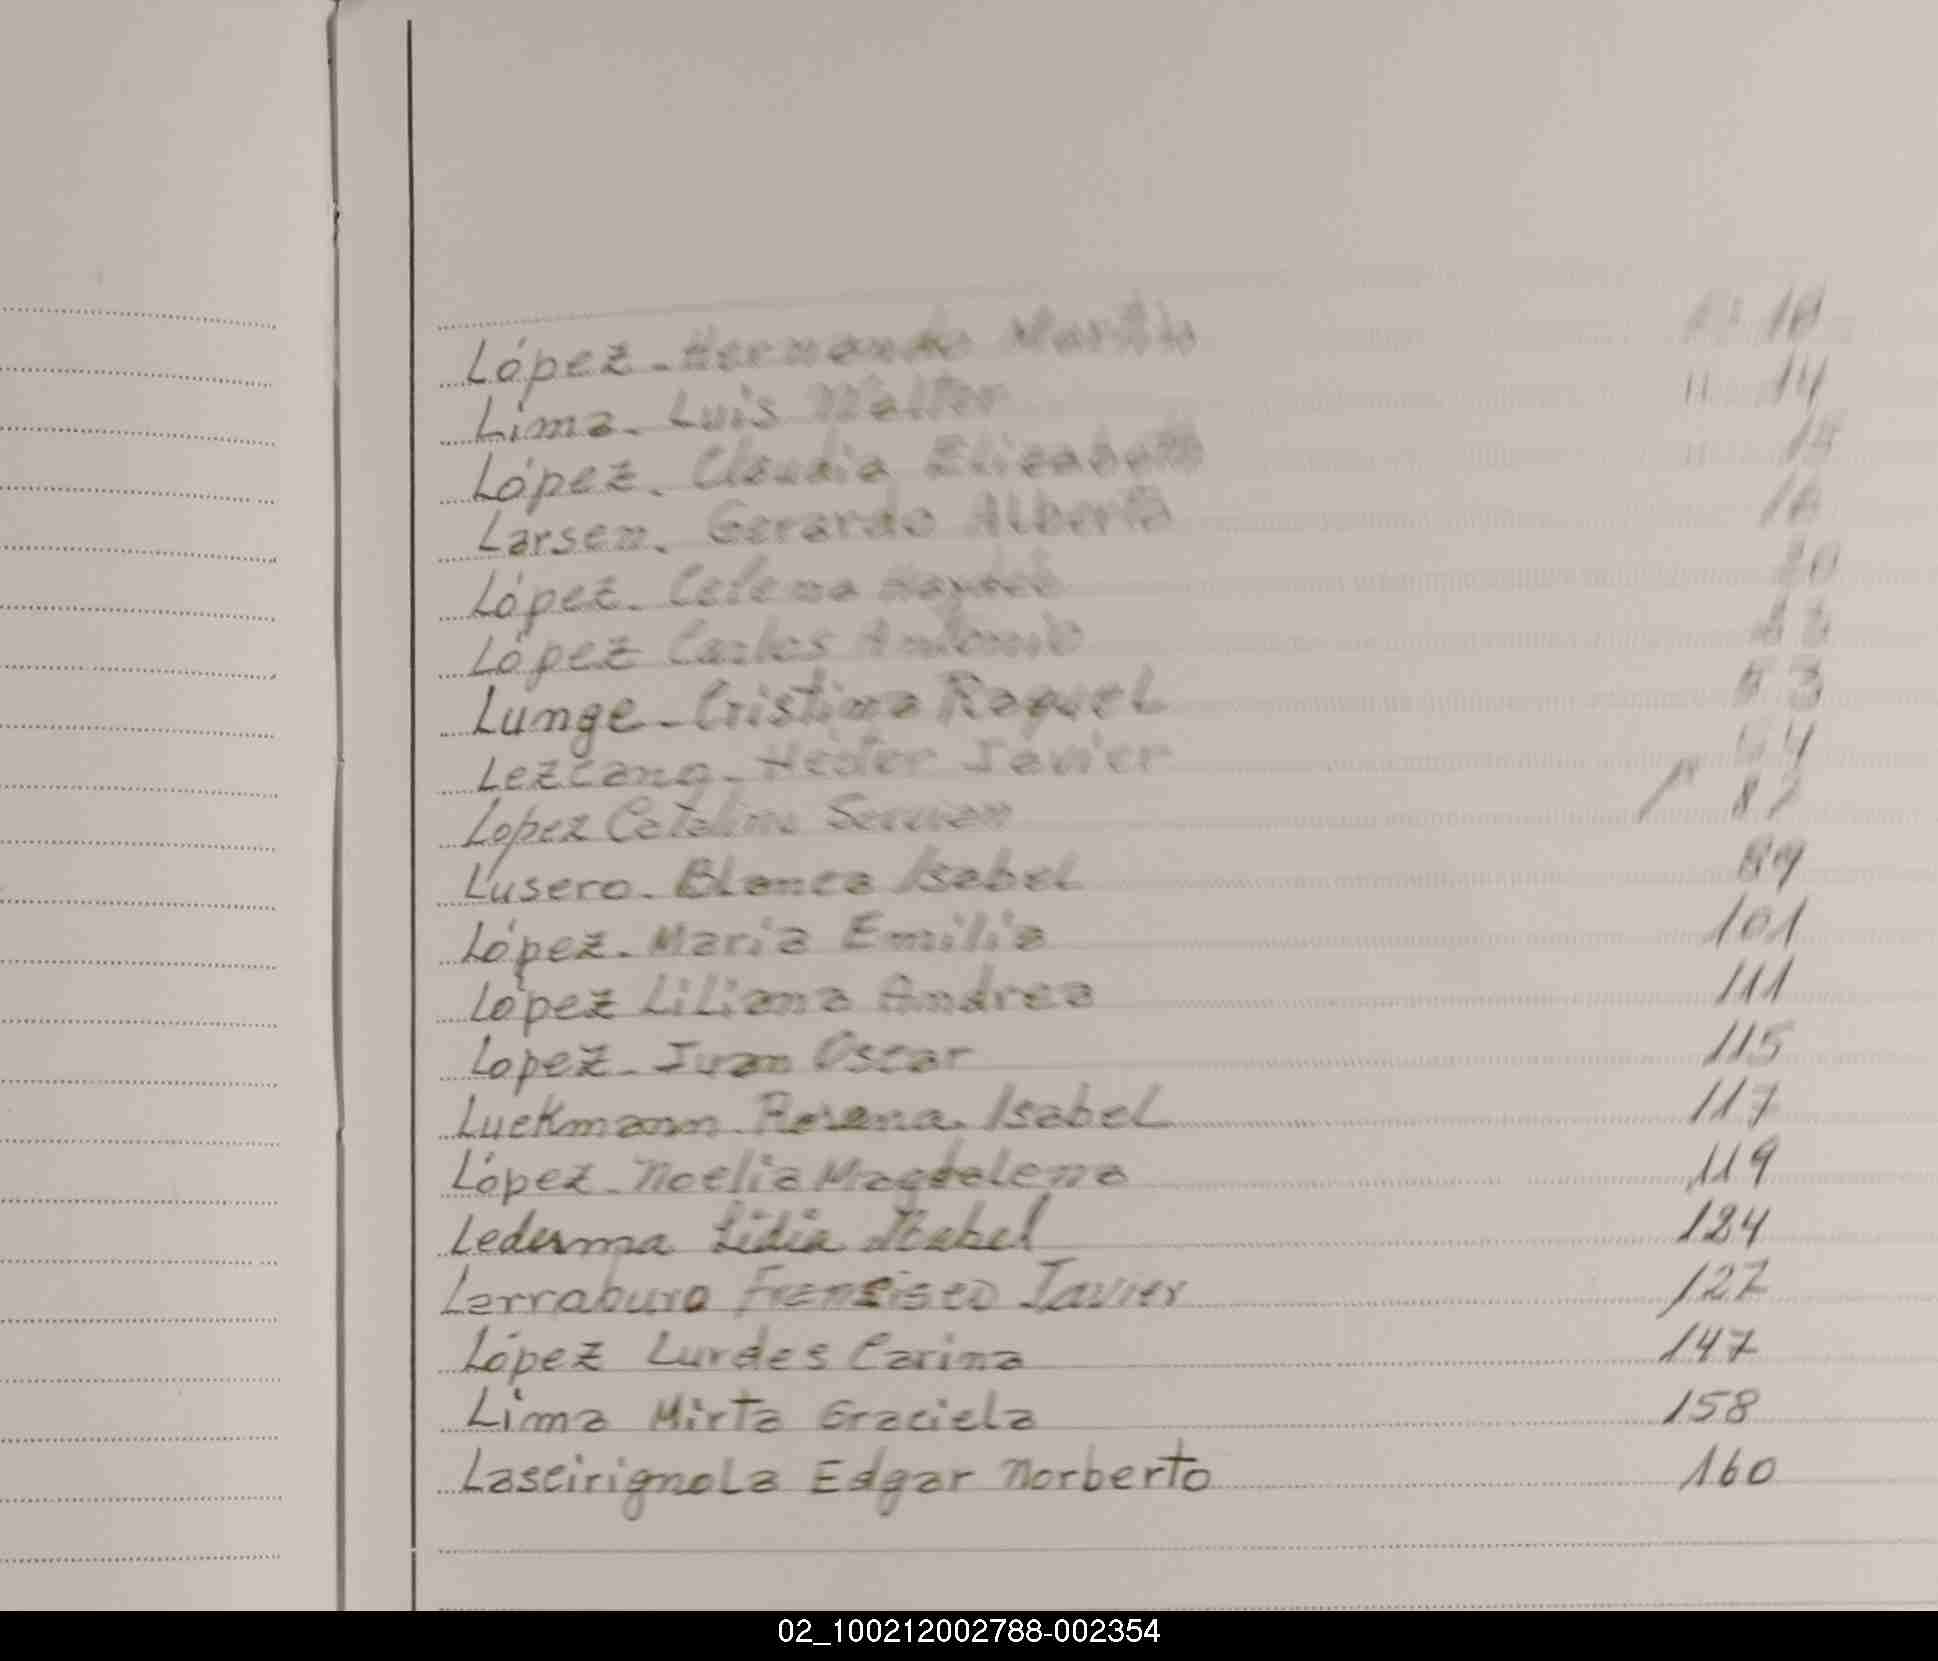 López - Hernando Martín 10
Lima. Luis Walter " 14
López. Claudia Elizabeth "
Larsen. Gerardo Alberto
López. Celena Haydeé
López Carlos Antonio
Lunge - Cristina Raquel
Lezcano - Hector Javier
Lopez Catalina
Lusero. Blanca Isabel 89
López. Maria Emilia 101
López Liliana Andrea 111
Lopez - Juan Oscar 115
Luckmann Isabel 117
López - Noelia Magdalena 119
Lederma Lidia Mabel 124
Larraburo Francisco Javier 127
López Lurdes Carina 147
Lima Mirta Graciela 158
Lascirignola Edgar Norberto 160
02_100212002788-002354